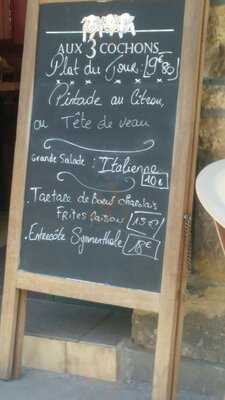 AUX 3 COCHONS
Plat du Jour 9€80
Pintade au Citron,
ou Tête de veau
Grande Salade : Italienne
10€
. Tartare de Boeuf charolais
Frites maison 15€
. Entrecôte Symmenthale 18€